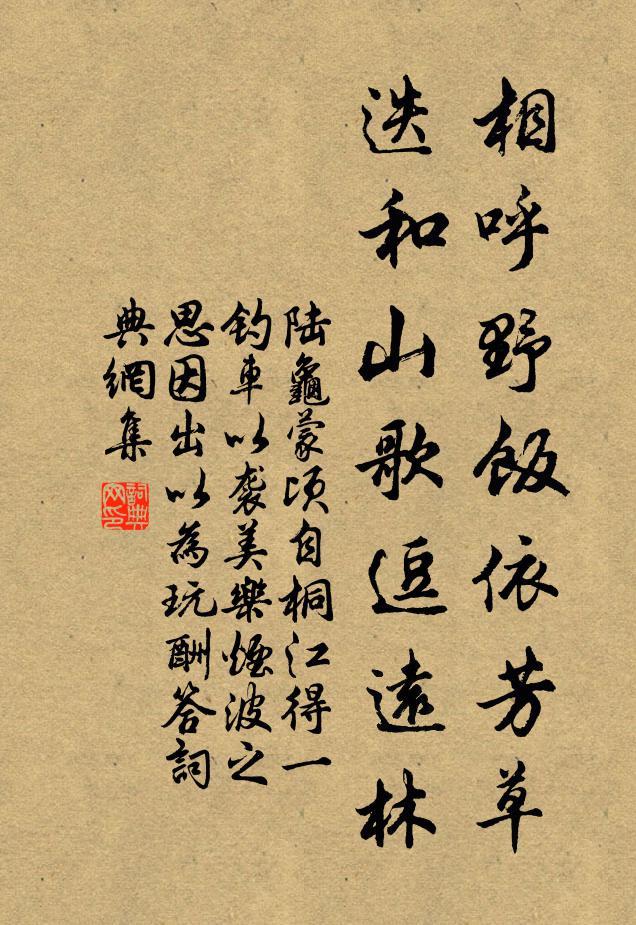 相呼野飯依芳草
迭和山歌逗遠林
陆龜蒙頃自桐江得一
釣車以袭美樂煙波之
思因出以為玩酬答詞
典網集
詞典
网印